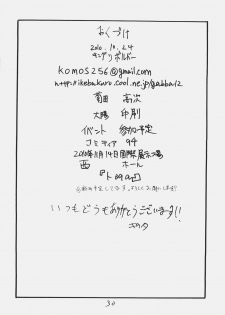 おくづけ
2010.10.24
キングリボルバー
komos256@gmail.com
http://ikebukuro.cool.ne.jp/gabba12
菊田 高次
太陽 印刷
イベント 参加予定
コミティア 94
2010年11月14日国際展示場
西 ホール
いつもどうもありがとうございます!!
30